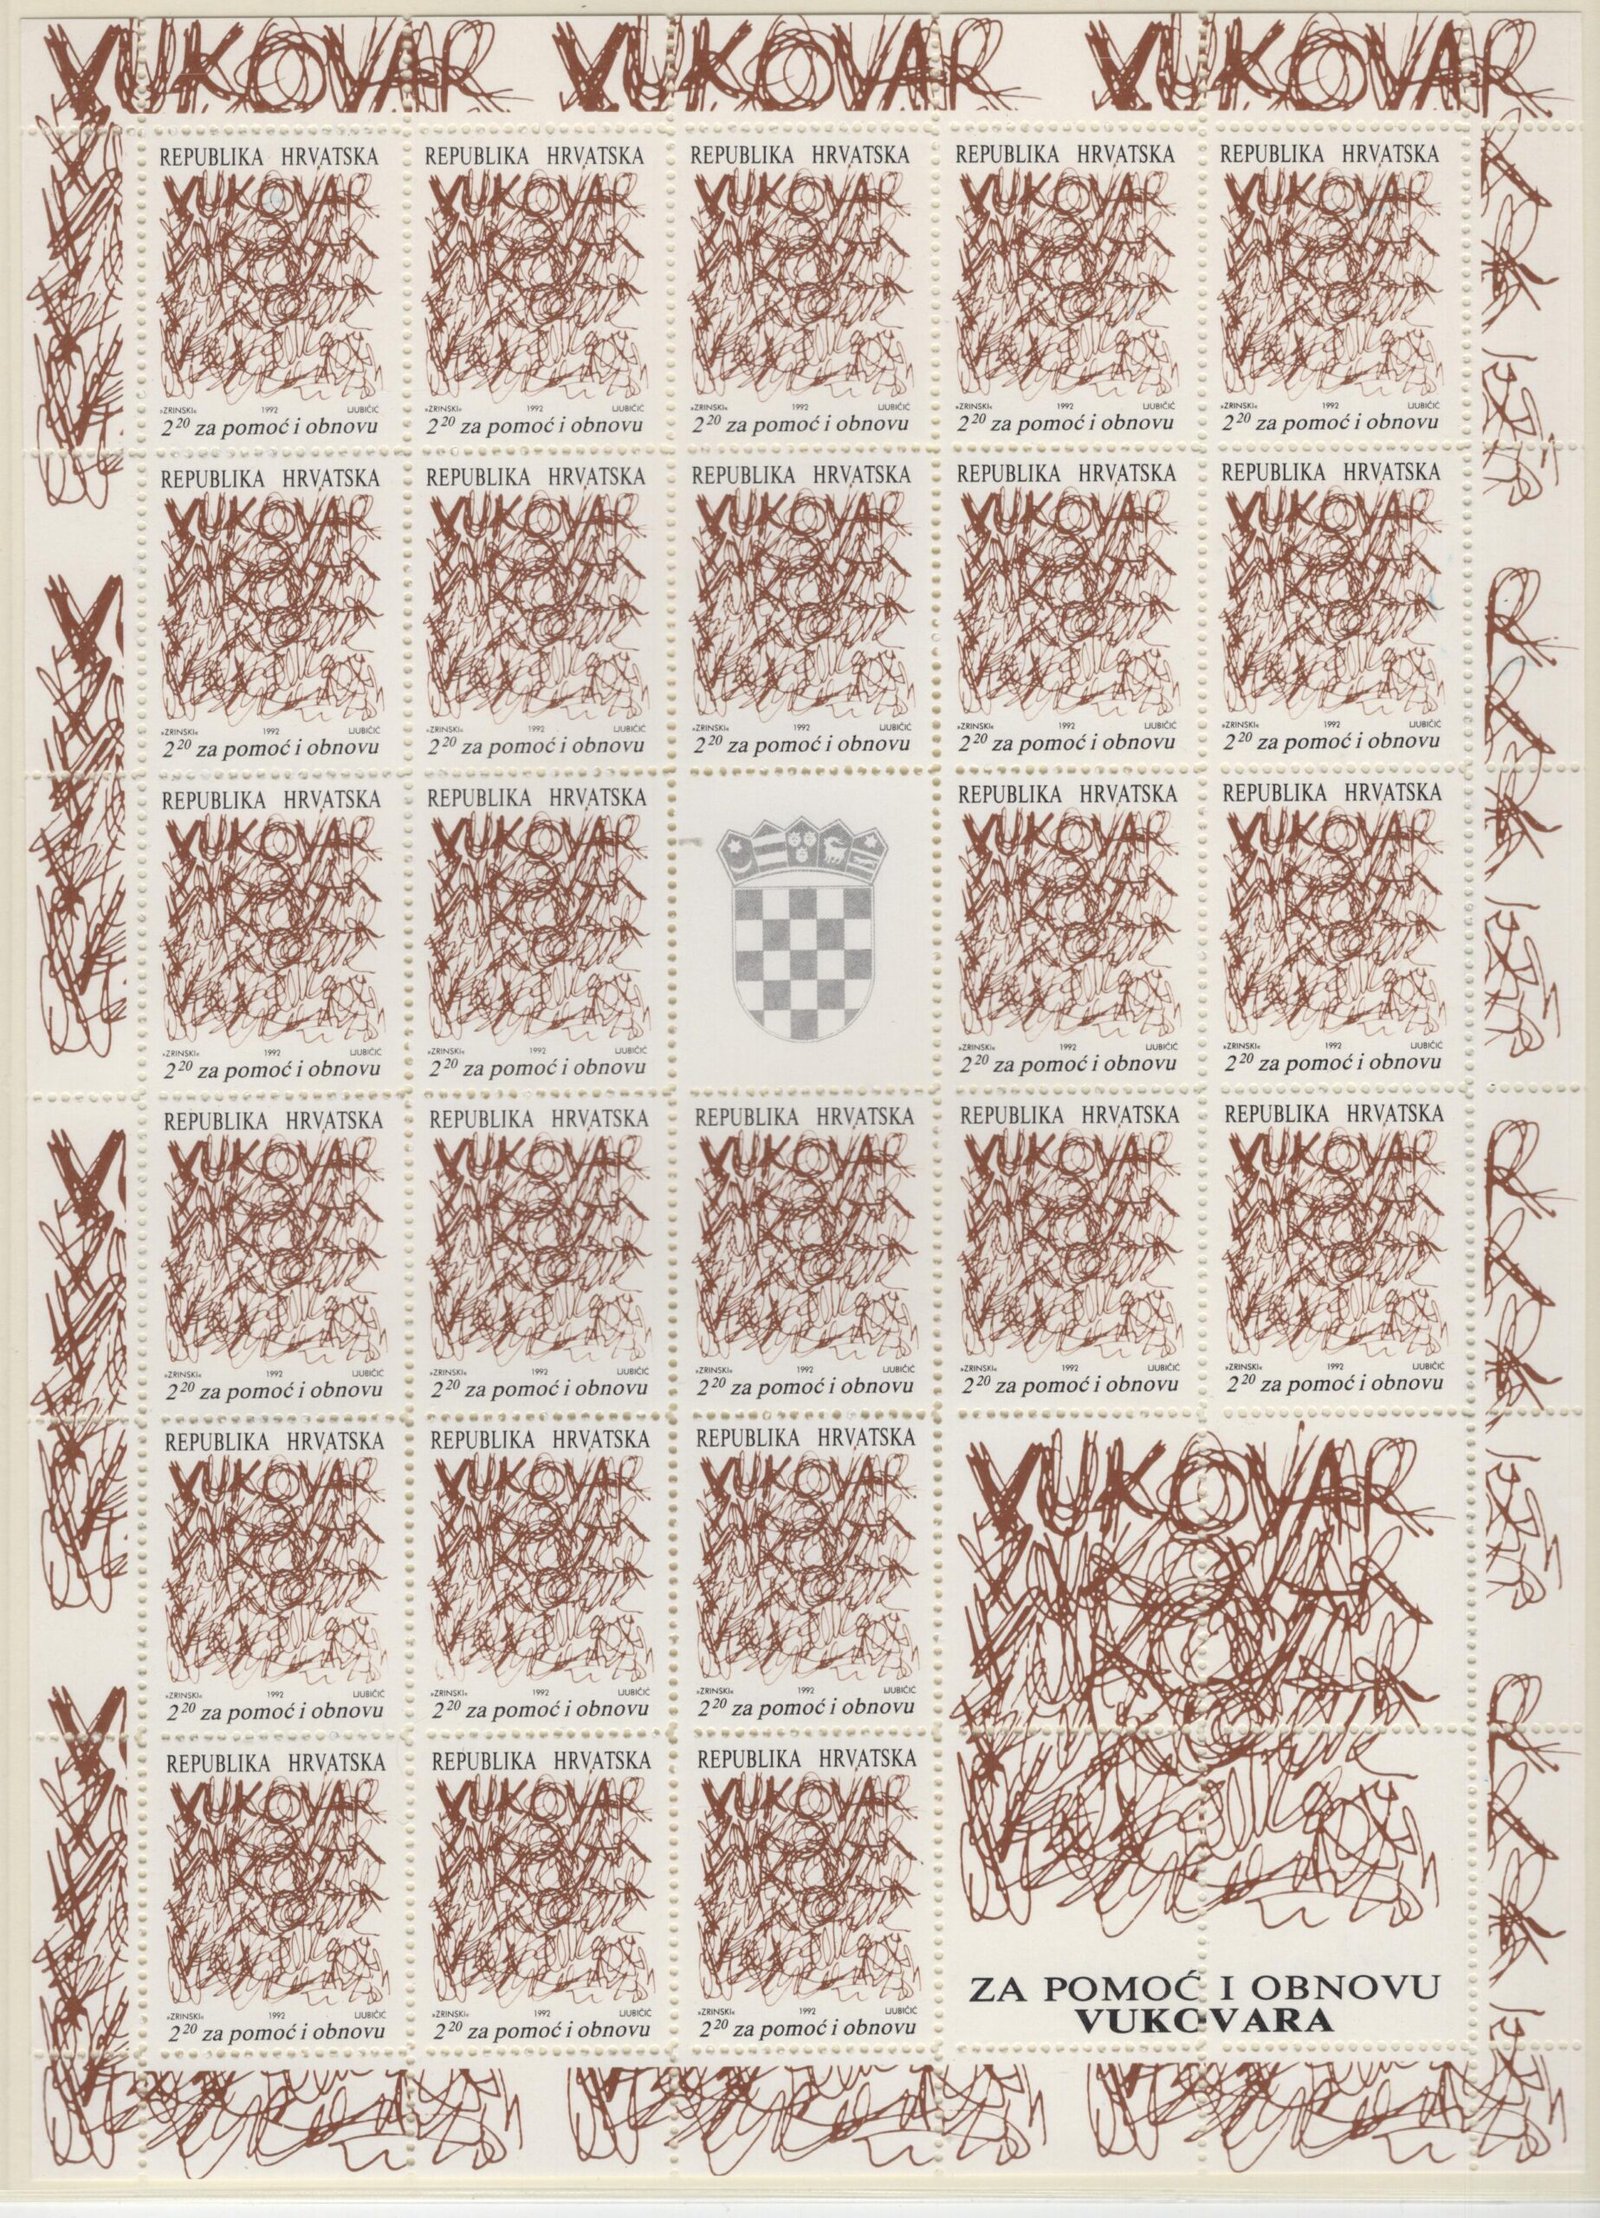 VUKOVAR VUKOVAR VUKOVAR
REPUBLIKA HRVATSKA REPUBLIKA HRVATSKA REPUBLIKA HRVATSKA REPUBLIKA HRVATSKA REPUBLIKA HRVATSKA
VUKOVAR VUKOVAR VUKOVAR VUKOVAR VUKOVAR
»ZRINSKI« 1992 LJUBIČIĆ »ZRINSKI« 1992 LJUBIČIĆ »ZRINSKI« 1992 LJUBIČIĆ »ZRINSKI« 1992 LJUBIČIĆ »ZRINSKI« 1992 LJUBIČIĆ
2²⁰ za pomoć i obnovu 2²⁰ za pomoć i obnovu 2²⁰ za pomoć i obnovu 2²⁰ za pomoć i obnovu 2²⁰ za pomoć i obnovu
REPUBLIKA HRVATSKA REPUBLIKA HRVATSKA REPUBLIKA HRVATSKA REPUBLIKA HRVATSKA REPUBLIKA HRVATSKA
VUKOVAR VUKOVAR VUKOVAR VUKOVAR VUKOVAR
»ZRINSKI« 1992 LJUBIČIĆ »ZRINSKI« 1992 LJUBIČIĆ »ZRINSKI« 1992 LJUBIČIĆ »ZRINSKI« 1992 LJUBIČIĆ »ZRINSKI« 1992 LJUBIČIĆ
2²⁰ za pomoć i obnovu 2²⁰ za pomoć i obnovu 2²⁰ za pomoć i obnovu 2²⁰ za pomoć i obnovu 2²⁰ za pomoć i obnovu
REPUBLIKA HRVATSKA REPUBLIKA HRVATSKA REPUBLIKA HRVATSKA REPUBLIKA HRVATSKA
VUKOVAR VUKOVAR VUKOVAR VUKOVAR
»ZRINSKI« 1992 LJUBIČIĆ »ZRINSKI« 1992 LJUBIČIĆ »ZRINSKI« 1992 LJUBIČIĆ »ZRINSKI« 1992 LJUBIČIĆ
2²⁰ za pomoć i obnovu 2²⁰ za pomoć i obnovu 2²⁰ za pomoć i obnovu 2²⁰ za pomoć i obnovu
REPUBLIKA HRVATSKA REPUBLIKA HRVATSKA REPUBLIKA HRVATSKA REPUBLIKA HRVATSKA REPUBLIKA HRVATSKA
VUKOVAR VUKOVAR VUKOVAR VUKOVAR VUKOVAR
»ZRINSKI« 1992 LJUBIČIĆ »ZRINSKI« 1992 LJUBIČIĆ »ZRINSKI« 1992 LJUBIČIĆ »ZRINSKI« 1992 LJUBIČIĆ »ZRINSKI« 1992 LJUBIČIĆ
2²⁰ za pomoć i obnovu 2²⁰ za pomoć i obnovu 2²⁰ za pomoć i obnovu 2²⁰ za pomoć i obnovu 2²⁰ za pomoć i obnovu
REPUBLIKA HRVATSKA REPUBLIKA HRVATSKA REPUBLIKA HRVATSKA
VUKOVAR VUKOVAR VUKOVAR VUKOVAR
»ZRINSKI« 1992 LJUBIČIĆ »ZRINSKI« 1992 LJUBIČIĆ »ZRINSKI« 1992 LJUBIČIĆ
2²⁰ za pomoć i obnovu 2²⁰ za pomoć i obnovu 2²⁰ za pomoć i obnovu
REPUBLIKA HRVATSKA REPUBLIKA HRVATSKA REPUBLIKA HRVATSKA
VUKOVAR VUKOVAR VUKOVAR
»ZRINSKI« 1992 LJUBIČIĆ »ZRINSKI« 1992 LJUBIČIĆ »ZRINSKI« 1992 LJUBIČIĆ
2²⁰ za pomoć i obnovu 2²⁰ za pomoć i obnovu 2²⁰ za pomoć i obnovu
ZA POMOĆ I OBNOVU
VUKOVARA